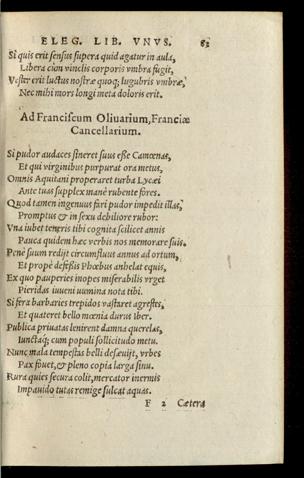 ELEG. LIB. VNVS. 83
Si quis erit sensus supera quid agatur in aula,
Libera cùm vinclis corporis vmbra fugit,
Vester erit luctus nostræ quoq; lugubris vmbræ,
Nec mihi mors longi meta doloris erit.
Ad Franciscum Oliuarium, Franciæ
Cancellarium.
Si pudor audaces sineret suus esse Camœnas,
Et qui virginibus purpurat ora metus,
Omnis Aquitani properaret turba Lycæi
Ante tuas supplex manè rubente fores.
Quod tamen ingenuus fari pudor impedit illas,
Promptus & in sexu debiliore rubor:
Vna iubet teneris tibi cognita scilicet annis
Pauca quidem hæc verbis nos memorare suis.
Penè suum redijt circumfluus annus ad ortum,
Et propè defessis Phœbus anhelat equis,
Ex quo pauperies inopes miserabilis vrget
Pieridas iuueni nomina nota tibi.
Si fera barbaries trepidos vastaret agrestes,
Et quateret bello mœnia durus Iber.
Publica priuatas lenirent damna querelas,
Iunctaq; cum populi sollicitudo metu.
Nunc mala tempestas belli desæuijt, vrbes
Pax fouet, & pleno copia larga sinu.
Rura quies secura colit, mercator inermis
Impauido tutas remige sulcat aquas.
F 2 Cætera